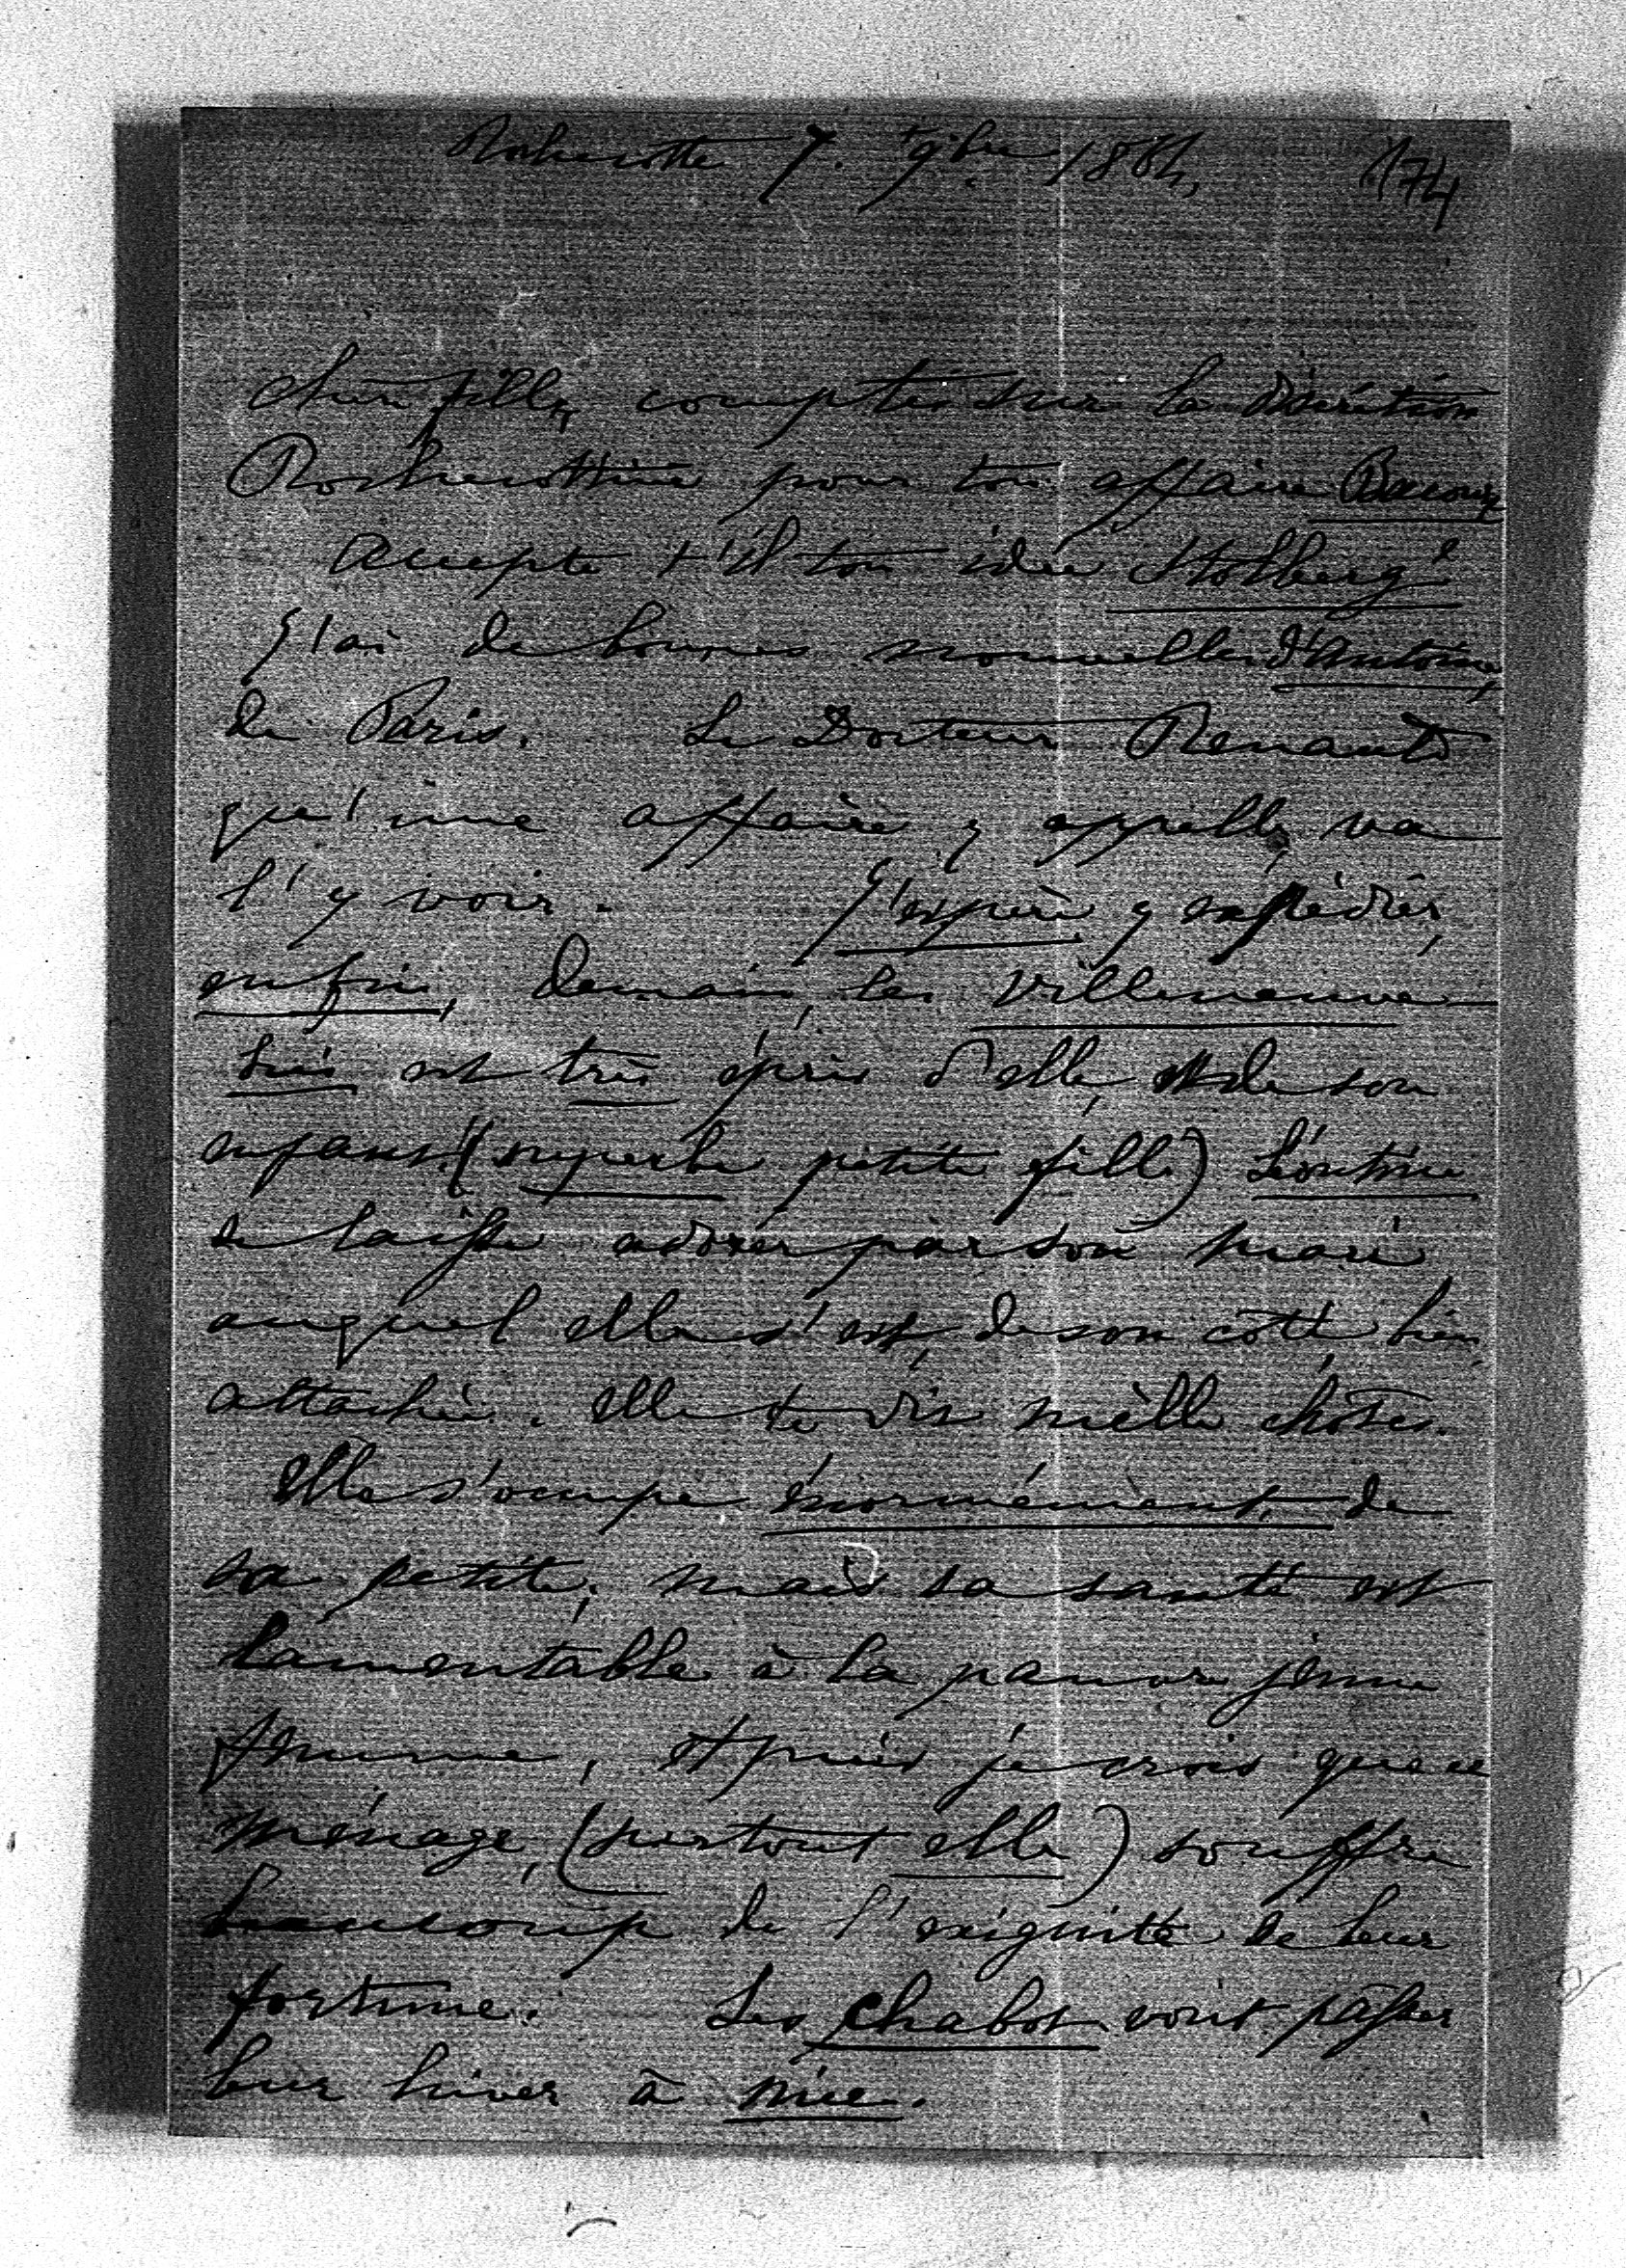 Rochecotte 7. 9bre 1861, 174
Chère fille, comptés sur la discrétion
Rochecottine pour ton affaire Bacourt
Accepte t'il ton idée Stolberg?
J'ai de bonnes nouvelles d'Antoine,
de Paris. Le Docteur Renault
qu'une affaire y appelle, va
l'y voir. J'espère y expédier,
enfin, demain, les Villeneuve
Lui est très épris d'elle, et de son
enfant (superbe petite fille) Léontine
se laisse adorer par son mari
auquel elle s'est, de son côté, bien
attachée. Elle te dit mille choses.
Elle s'occupe énormément de
sa petite; mais sa santé est
lamentable à la pauvre jeune
femme, et puis je crois que ce
ménage, (surtout elle) souffre
beaucoup de l'exiguité de leur
fortune. Les Chabot vont passer
leur hiver à Nice.